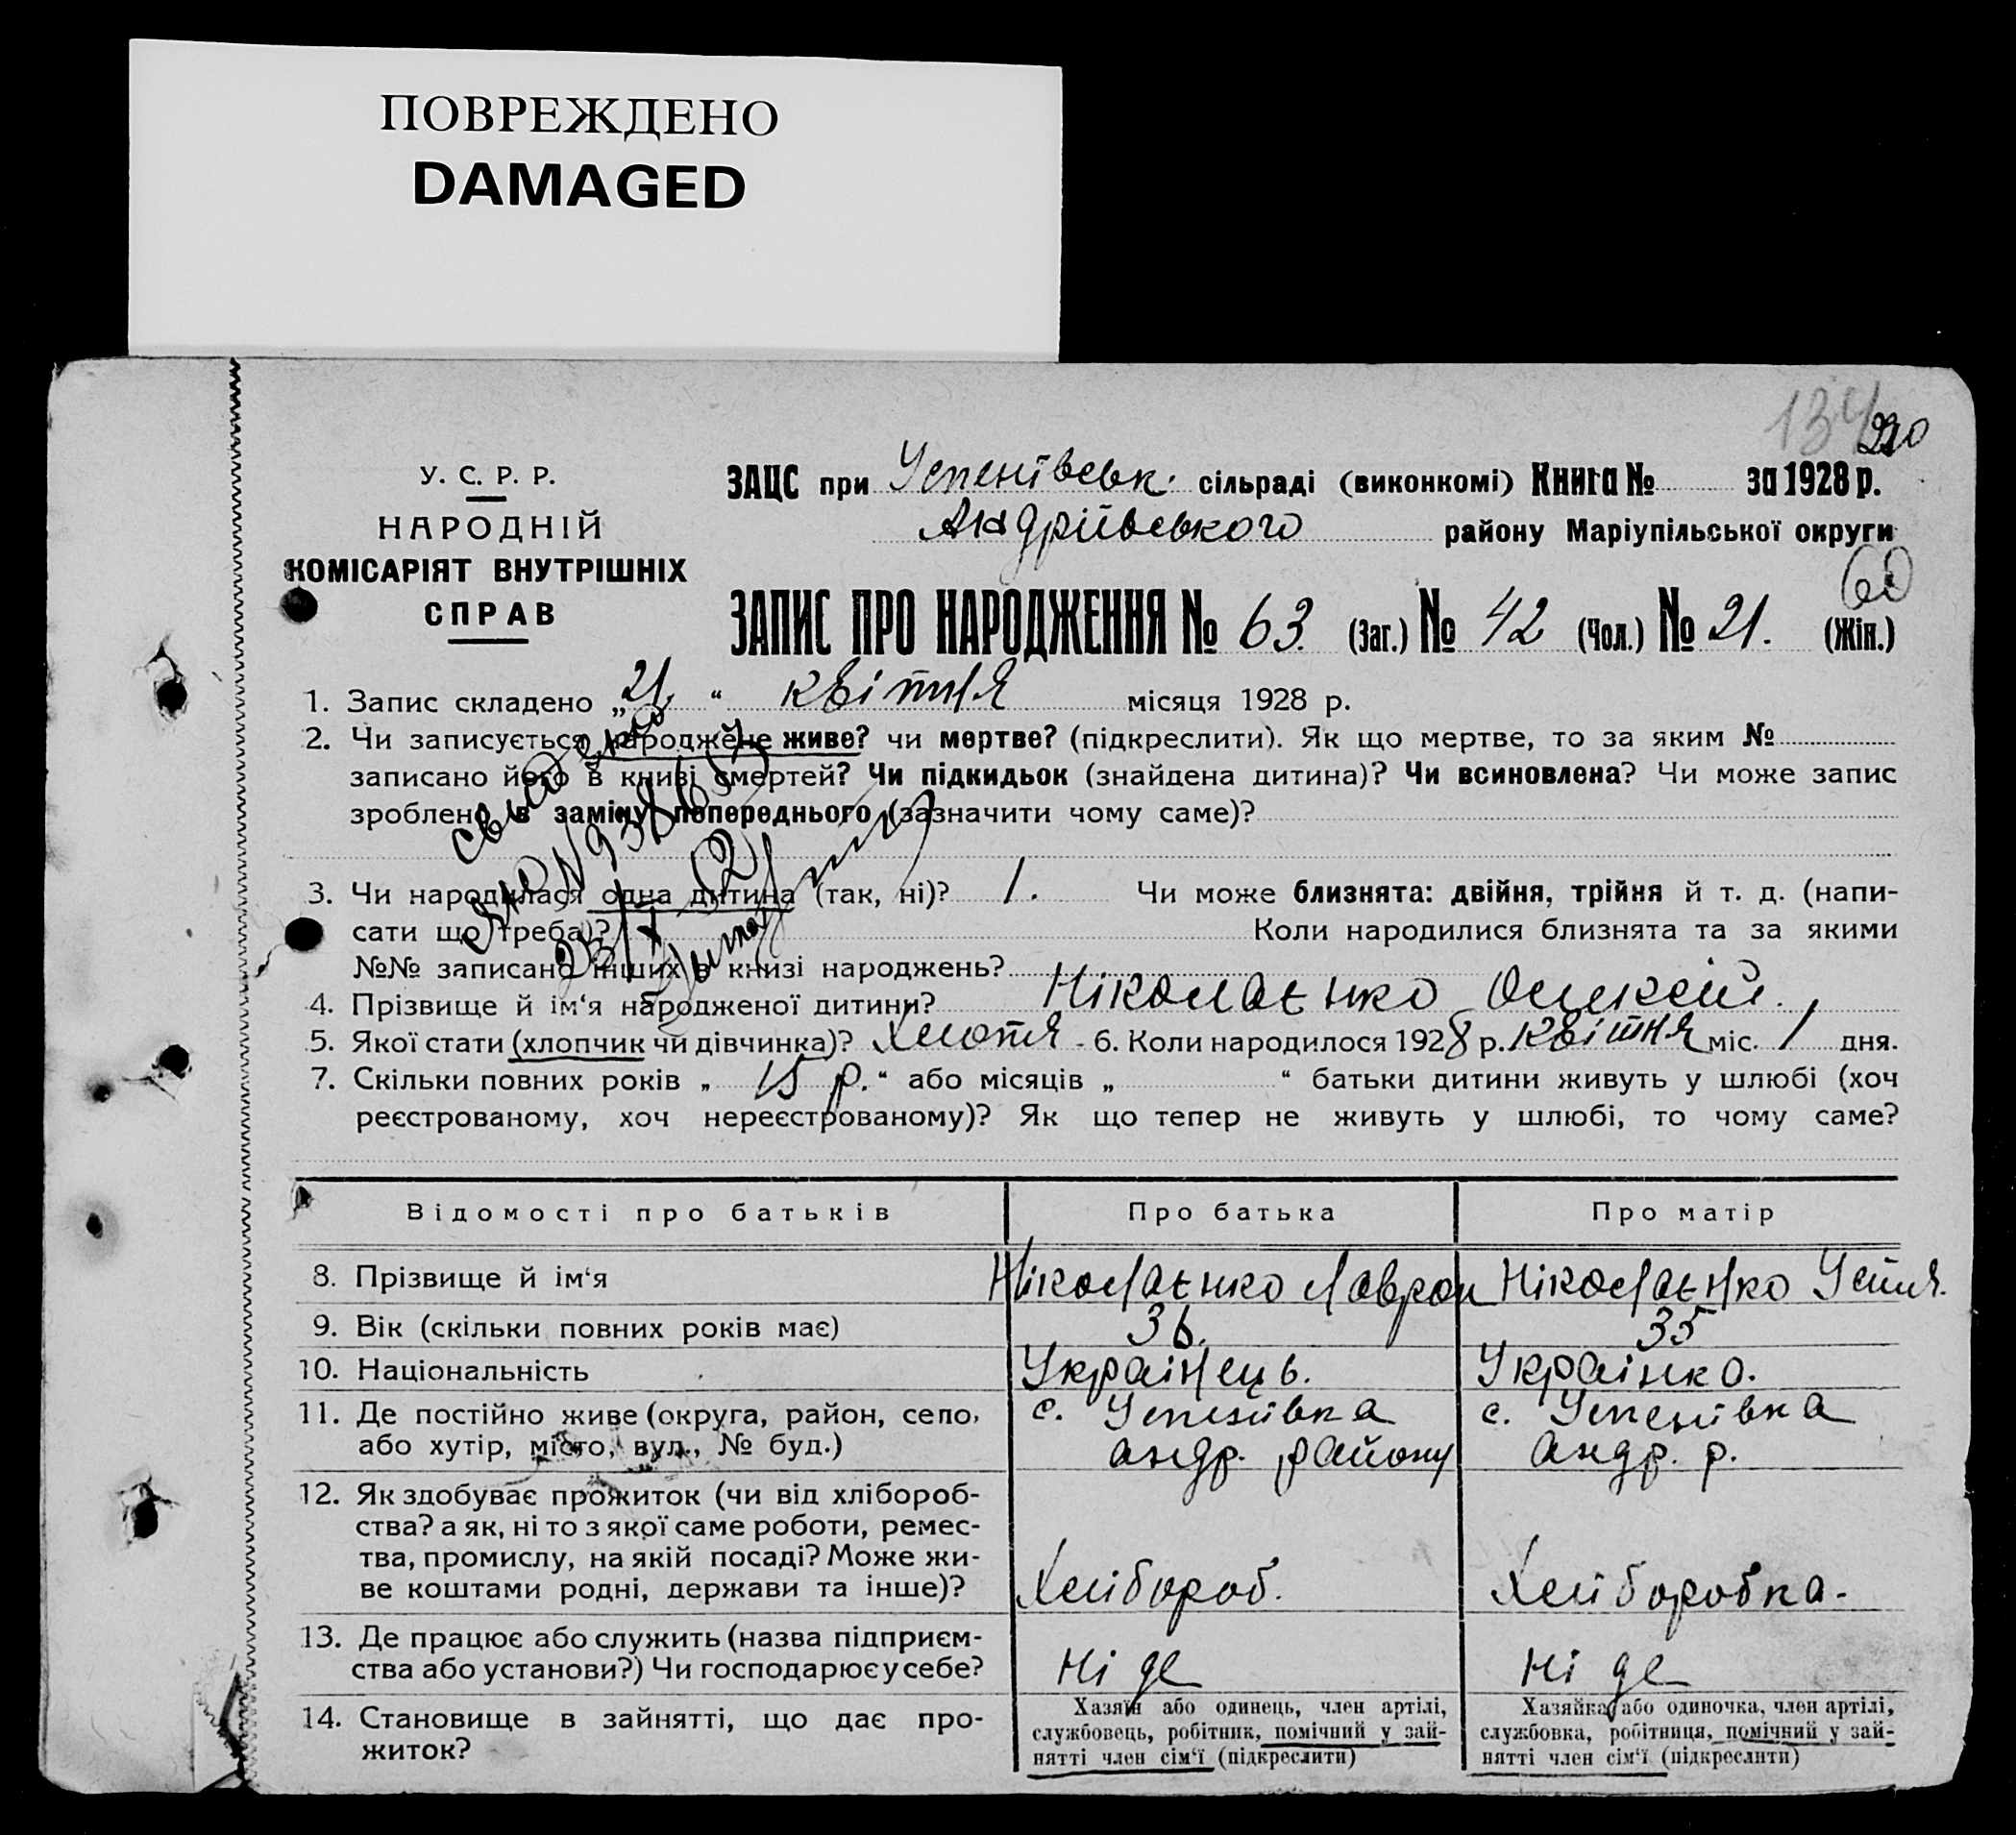 ПОВРЕЖДЕНО
DAMAGED
134
220
У. С. Р. Р.
НАРОДНІЙ
КОМІСАРІЯТ ВНУТРІШНІХ
СПРАВ
ЗАЦС при Успенівськ. сільраді (виконкомі) Книга № за 1928 р.
Андріївського району Маріупільської округи
60
ЗАПИС ПРО НАРОДЖЕННЯ № 63. (Заг.) № 42 (Чол.) № 21. (Жін.)
1. Запис складено „21“ квітня місяця 1928 р.
2. Чи записується народжене живе? чи мертве? (підкреслити). Як що мертве, то за яким №
записано його в книзі смертей? Чи підкидьок (знайдена дитина)? Чи всиновлена? Чи може запис
зроблено в заміну попереднього (зазначити чому саме)?
3. Чи народилася одна дитина (так, ні)? 1. Чи може близнята: двійня, трійня й т. д. (напи-
сати що треба)? Коли народилися близнята та за якими
№№ записано інших в книзі народжень?
4. Прізвище й ім‘я народженої дитини? Ніколаєнко Олексій.
5. Якої стати (хлопчик чи дівчинка)? Хлопя - 6. Коли народилося 1928 р. квітня міс. 1 дня.
7. Скільки повних років „ 15 р. “ або місяців „ “ батьки дитини живуть у шлюбі (хоч
реєстрованому, хоч нереєстрованому)? Як що тепер не живуть у шлюбі, то чому саме?
Відомості про батьків Про батька Про матір
8. Прізвище й ім‘я Ніколаєнко Лаврон Ніколаєнко Устя.
9. Вік (скільки повних років має) 36. 35
10. Національність Українець. Українка.
11. Де постійно живе (округа, район, село, с. Успенівка с. Успенівка
або хутір, місто, вул., № буд.) андр. району андр. р.
12. Як здобуває прожиток (чи від хлібороб-
ства? а як, ні то з якої саме роботи, ремес-
тва, промислу, на якій посаді? Може жи-
ве коштами родні, держави та інше)? Хлібороб. Хліборобка.
13. Де працює або служить (назва підприєм-
ства або установи?) Чи господарює у себе? Ні де Ні де
14. Становище в зайнятті, що дає про-
житок?
Хазяїн або одинець, член артілі,
службовець, робітник, помічний у зай-
нятті член сім‘ї (підкреслити)
Хазяйка або одиночка, член артілі,
службовка, робітниця, помічний у зай-
нятті член сім‘ї (підкреслити)